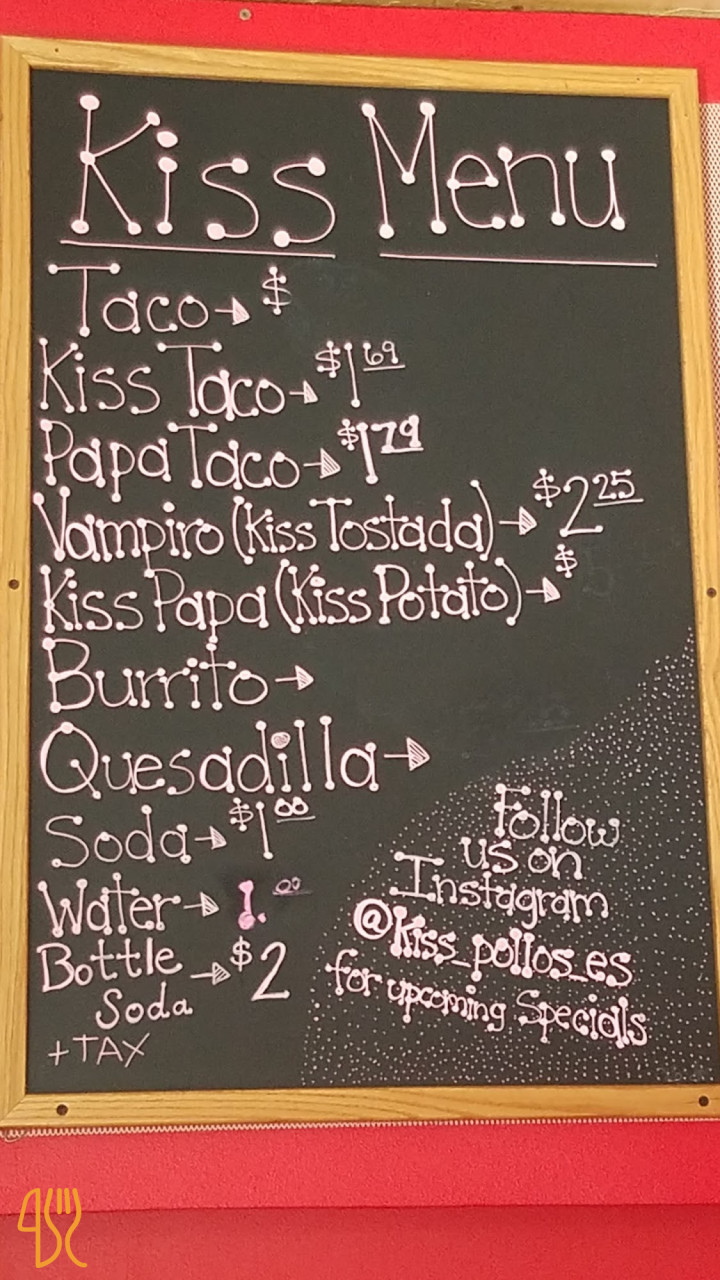 Kiss Menu
Taco→ $
Kiss Taco→ $1 69
Papa Taco→ $1 79
Vampiro (Kiss Tostada)→ $2 25
Kiss Papa (Kiss Potato)→ $
Burrito→
Quesadilla→
Soda→ $1 00
Water→ 1. 00
Bottle Soda → $2
+TAX
Follow
us on
Instagram
@kiss_pollos_es
for upcoming Specials